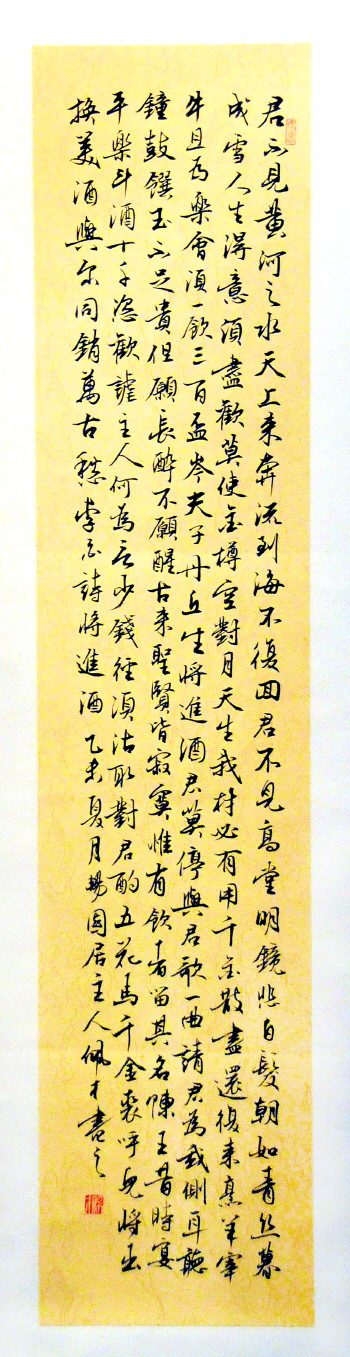 君不見黃河之水天上来奔流到海不復回君不見高堂明鏡悲白髮朝如青丝暮
成雪人生得意須盡歡莫使金樽空對月天生我材必有用千金散盡還復来烹羊宰
牛且为樂會須一飲三百盃岑夫子丹丘生將進酒君莫停與君歌一曲請君為我側耳聽
鐘鼓饌玉不足貴但願長醉不願醒古来聖賢皆寂寞惟有飲者留其名陳王昔時宴
平樂斗酒十千恣歡謔主人何為言少錢徑須沽取對君酌五花馬千金裘呼兒將出
換美酒與尔同銷萬古愁李白詩將進酒乙未夏月 園居主人佩才書之